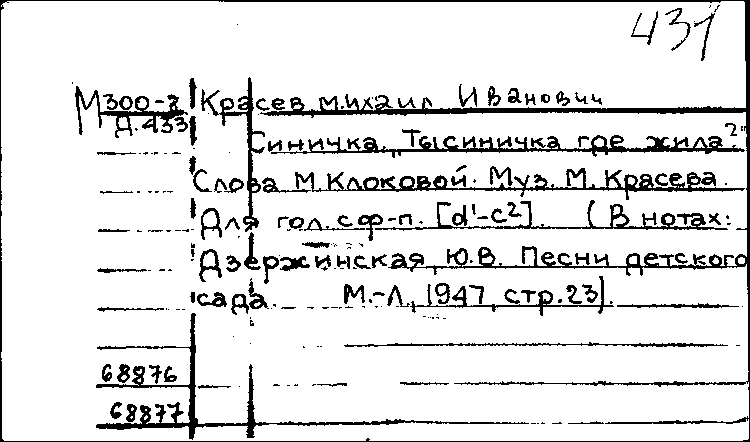 431
М300-8 Красев, Михаил Иванович
Д.433
Синичка. „Ты синичка где жила?"
Слова М. Клоковой. Муз. М. Красева.
Для гол. с ф-п. [d¹-c²]. (В нотах:
Дзержинская, Ю.В. Песни детского
сада. М.-Л., 1947, стр. 23).
68876
68877